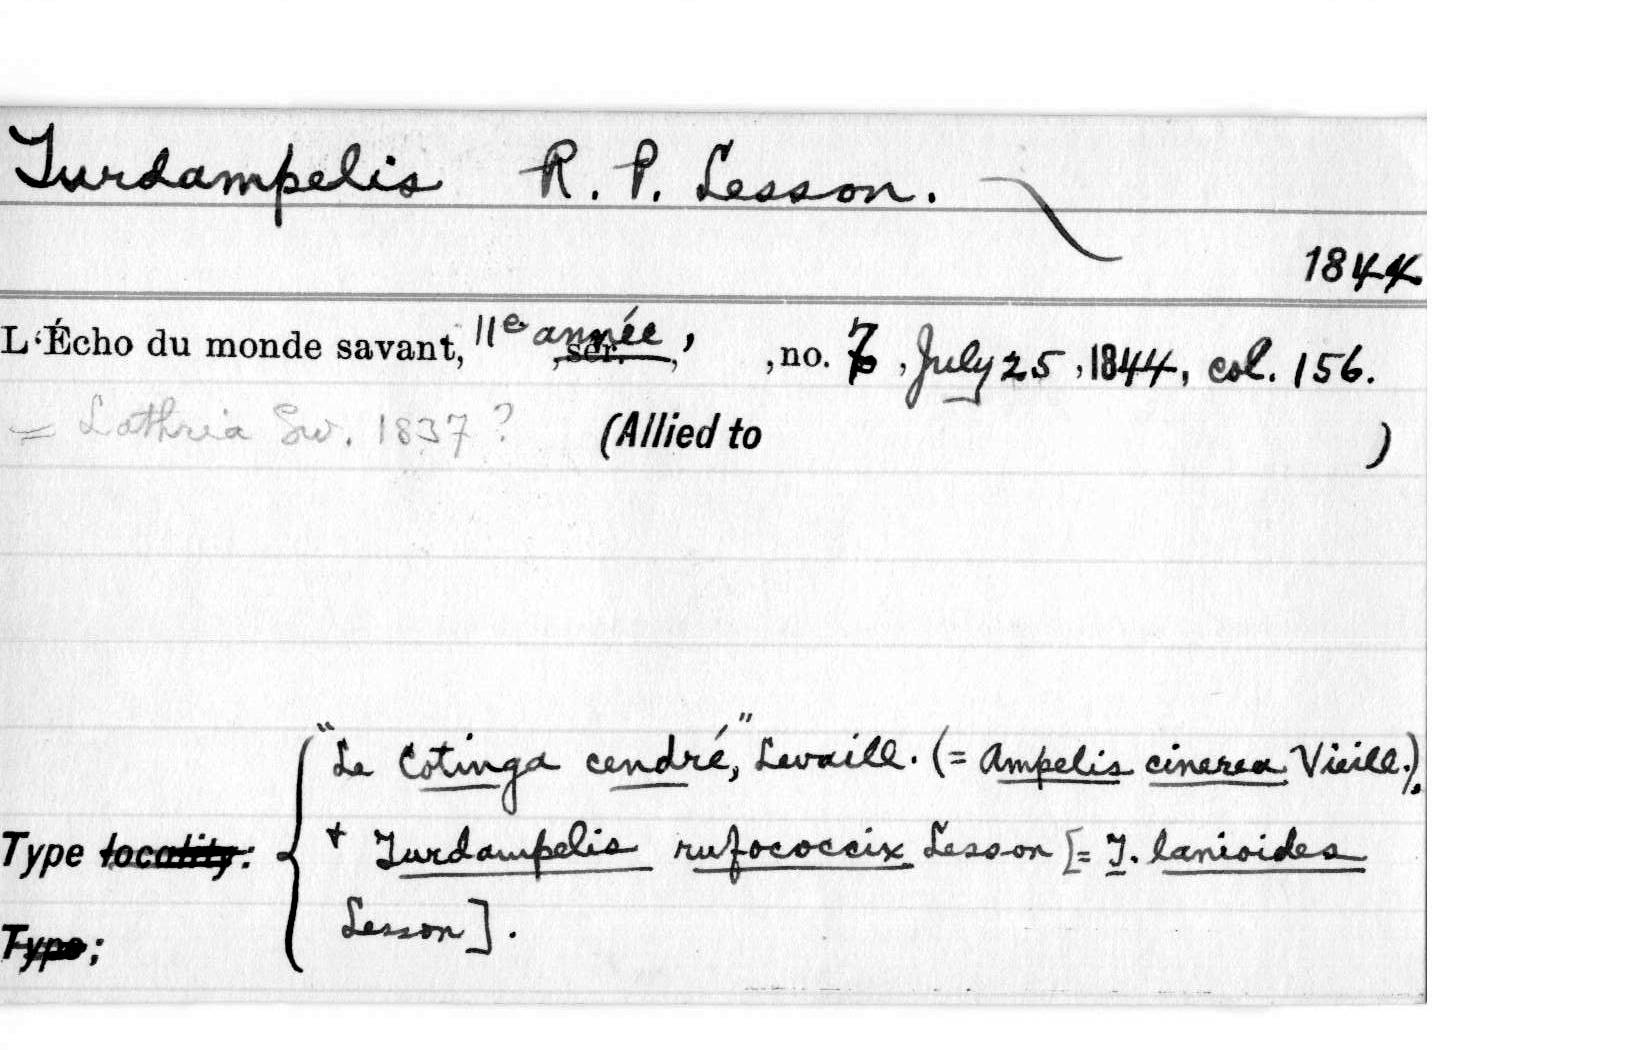 Turdampelis R. P. Lesson.
1844
L'Écho du monde savant, 11e année, , ser. , , no. 7, July 25, 1844, col. 156.
= Lathria Sw. 1837? (Allied to )
"Le Cotinga cendré," Levaill. (= Ampelis cinerea Vieill.),
Type locality: + Turdampelis rufococcix Lesson [= T. lanioides
Lesson].
Type;